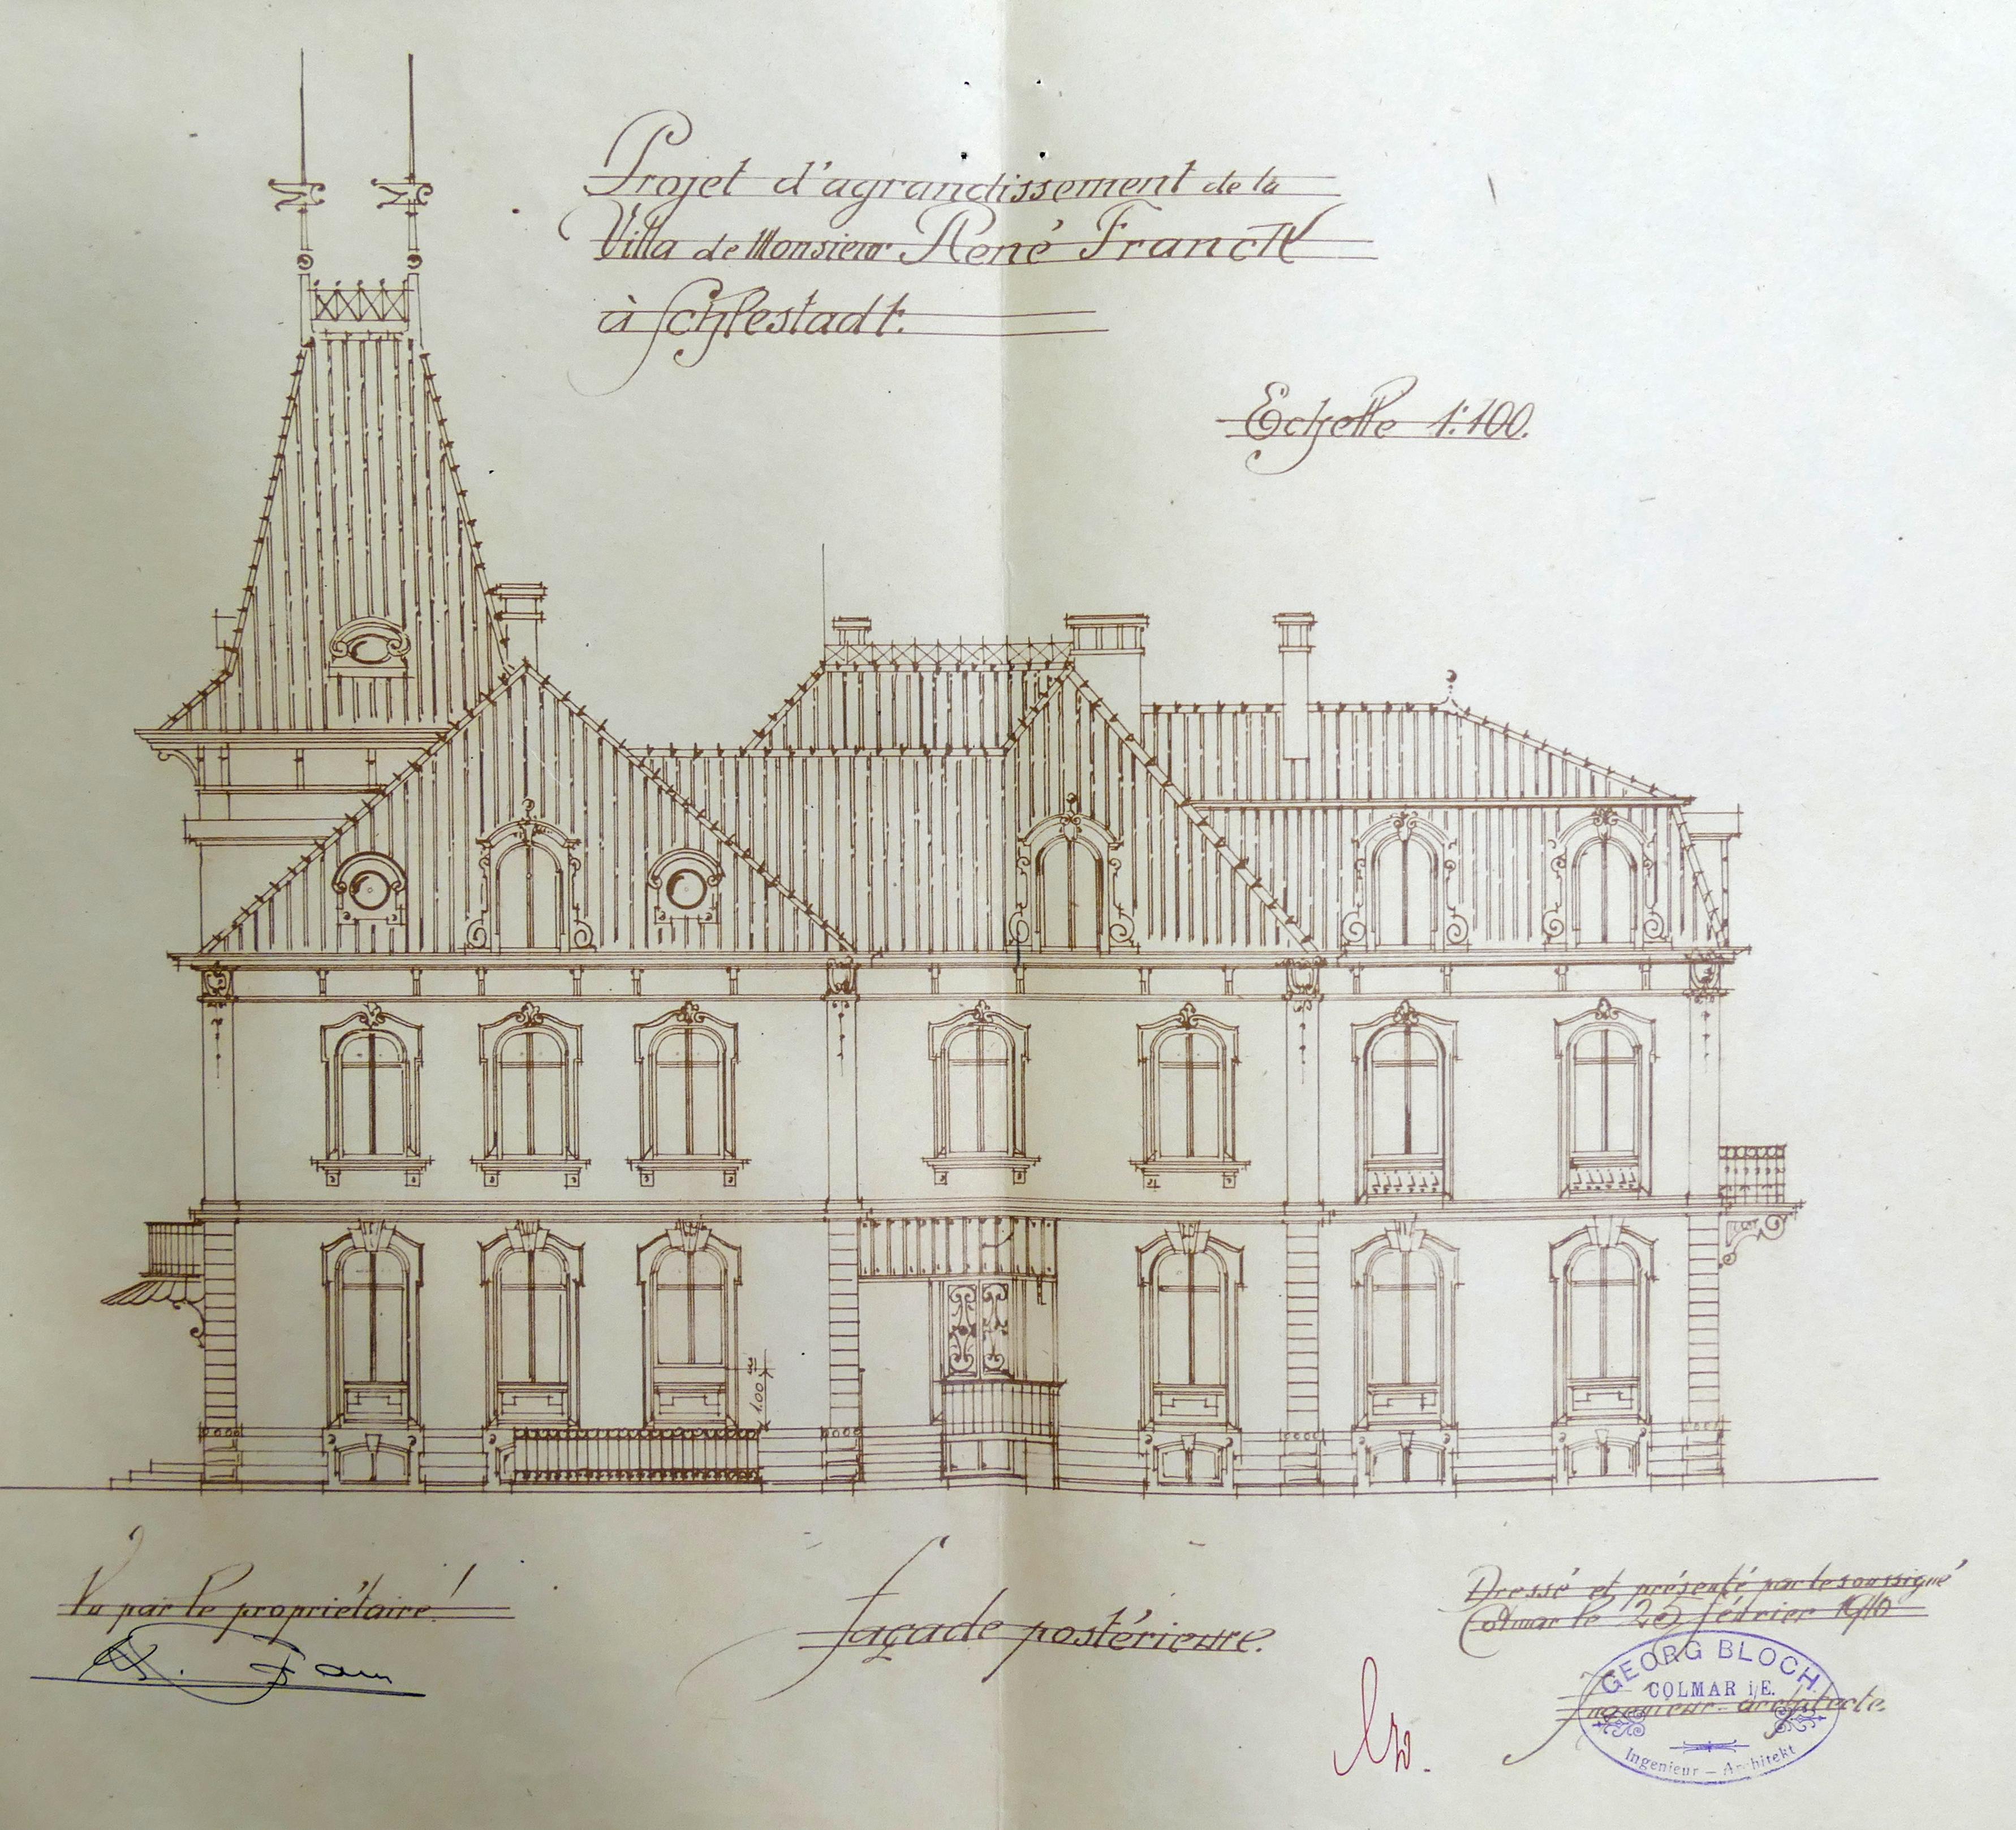 Projet d'agrandissement de la
Villa de Monsieur René Franck
à Schlestadt.
Echelle 1:100.
1.00 m
Vu par le propriétaire!
façade postérieure.
Dressé et présenté par le soussigné
Colmar le 25 février 1910
GEORG BLOCH
COLMAR i/E.
Ingénieur-architecte.
Ingenieur – Architekt